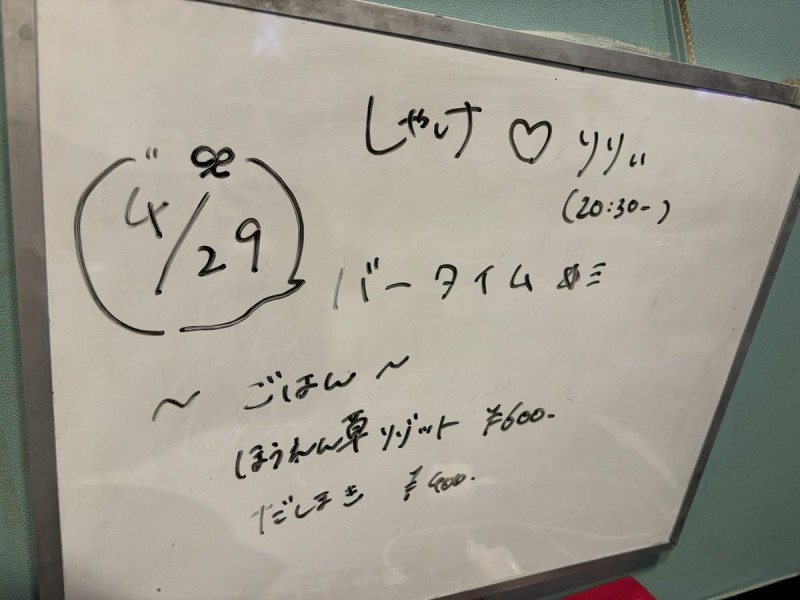 4/29
しゃけ♡りりぃ
(20:30-)
バータイム
〜 ごはん 〜
ほうれん草リゾット ¥600-
だしまき ¥400-